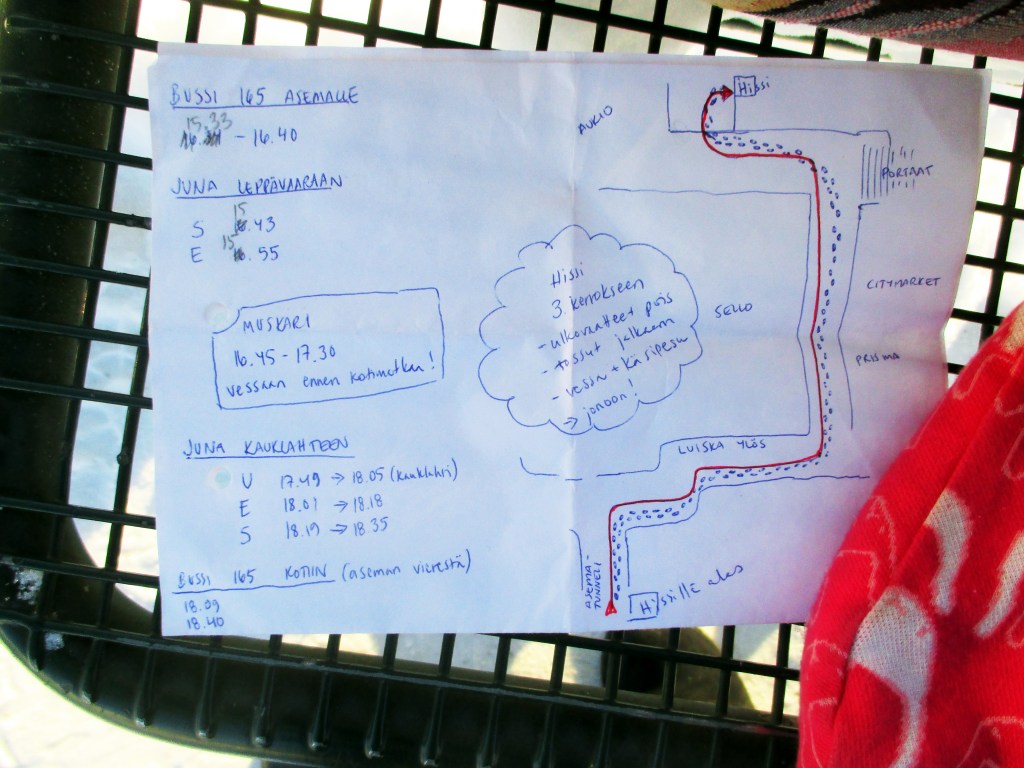 BUSSI 165 ASEMALLE
15.33
- 16.40
JUNA LEPPÄVAARAAN
S 15.43
E 15.55
MUSKARI
16.45 - 17.30
vessaan ennen kotimatkaa!
JUNA KAUKLAHTEEN
U 17.49 → 18.05 (Kauklahti)
E 18.01 → 18.18
S 18.19 → 18.35
BUSSI 165 KOTIIN (aseman vierestä)
18.09
18.40
Hissi
3. kerrokseen
- ulkovaatteet pois
- tossut jalkaan
- vessa + käsipesu
→ jonoon!
AUKIO
Hissi
PORTAAT
CITYMARKET
SELLO
PRISMA
LUISKA YLÖS
ASEMA-
TUNNELI
Hissille alas